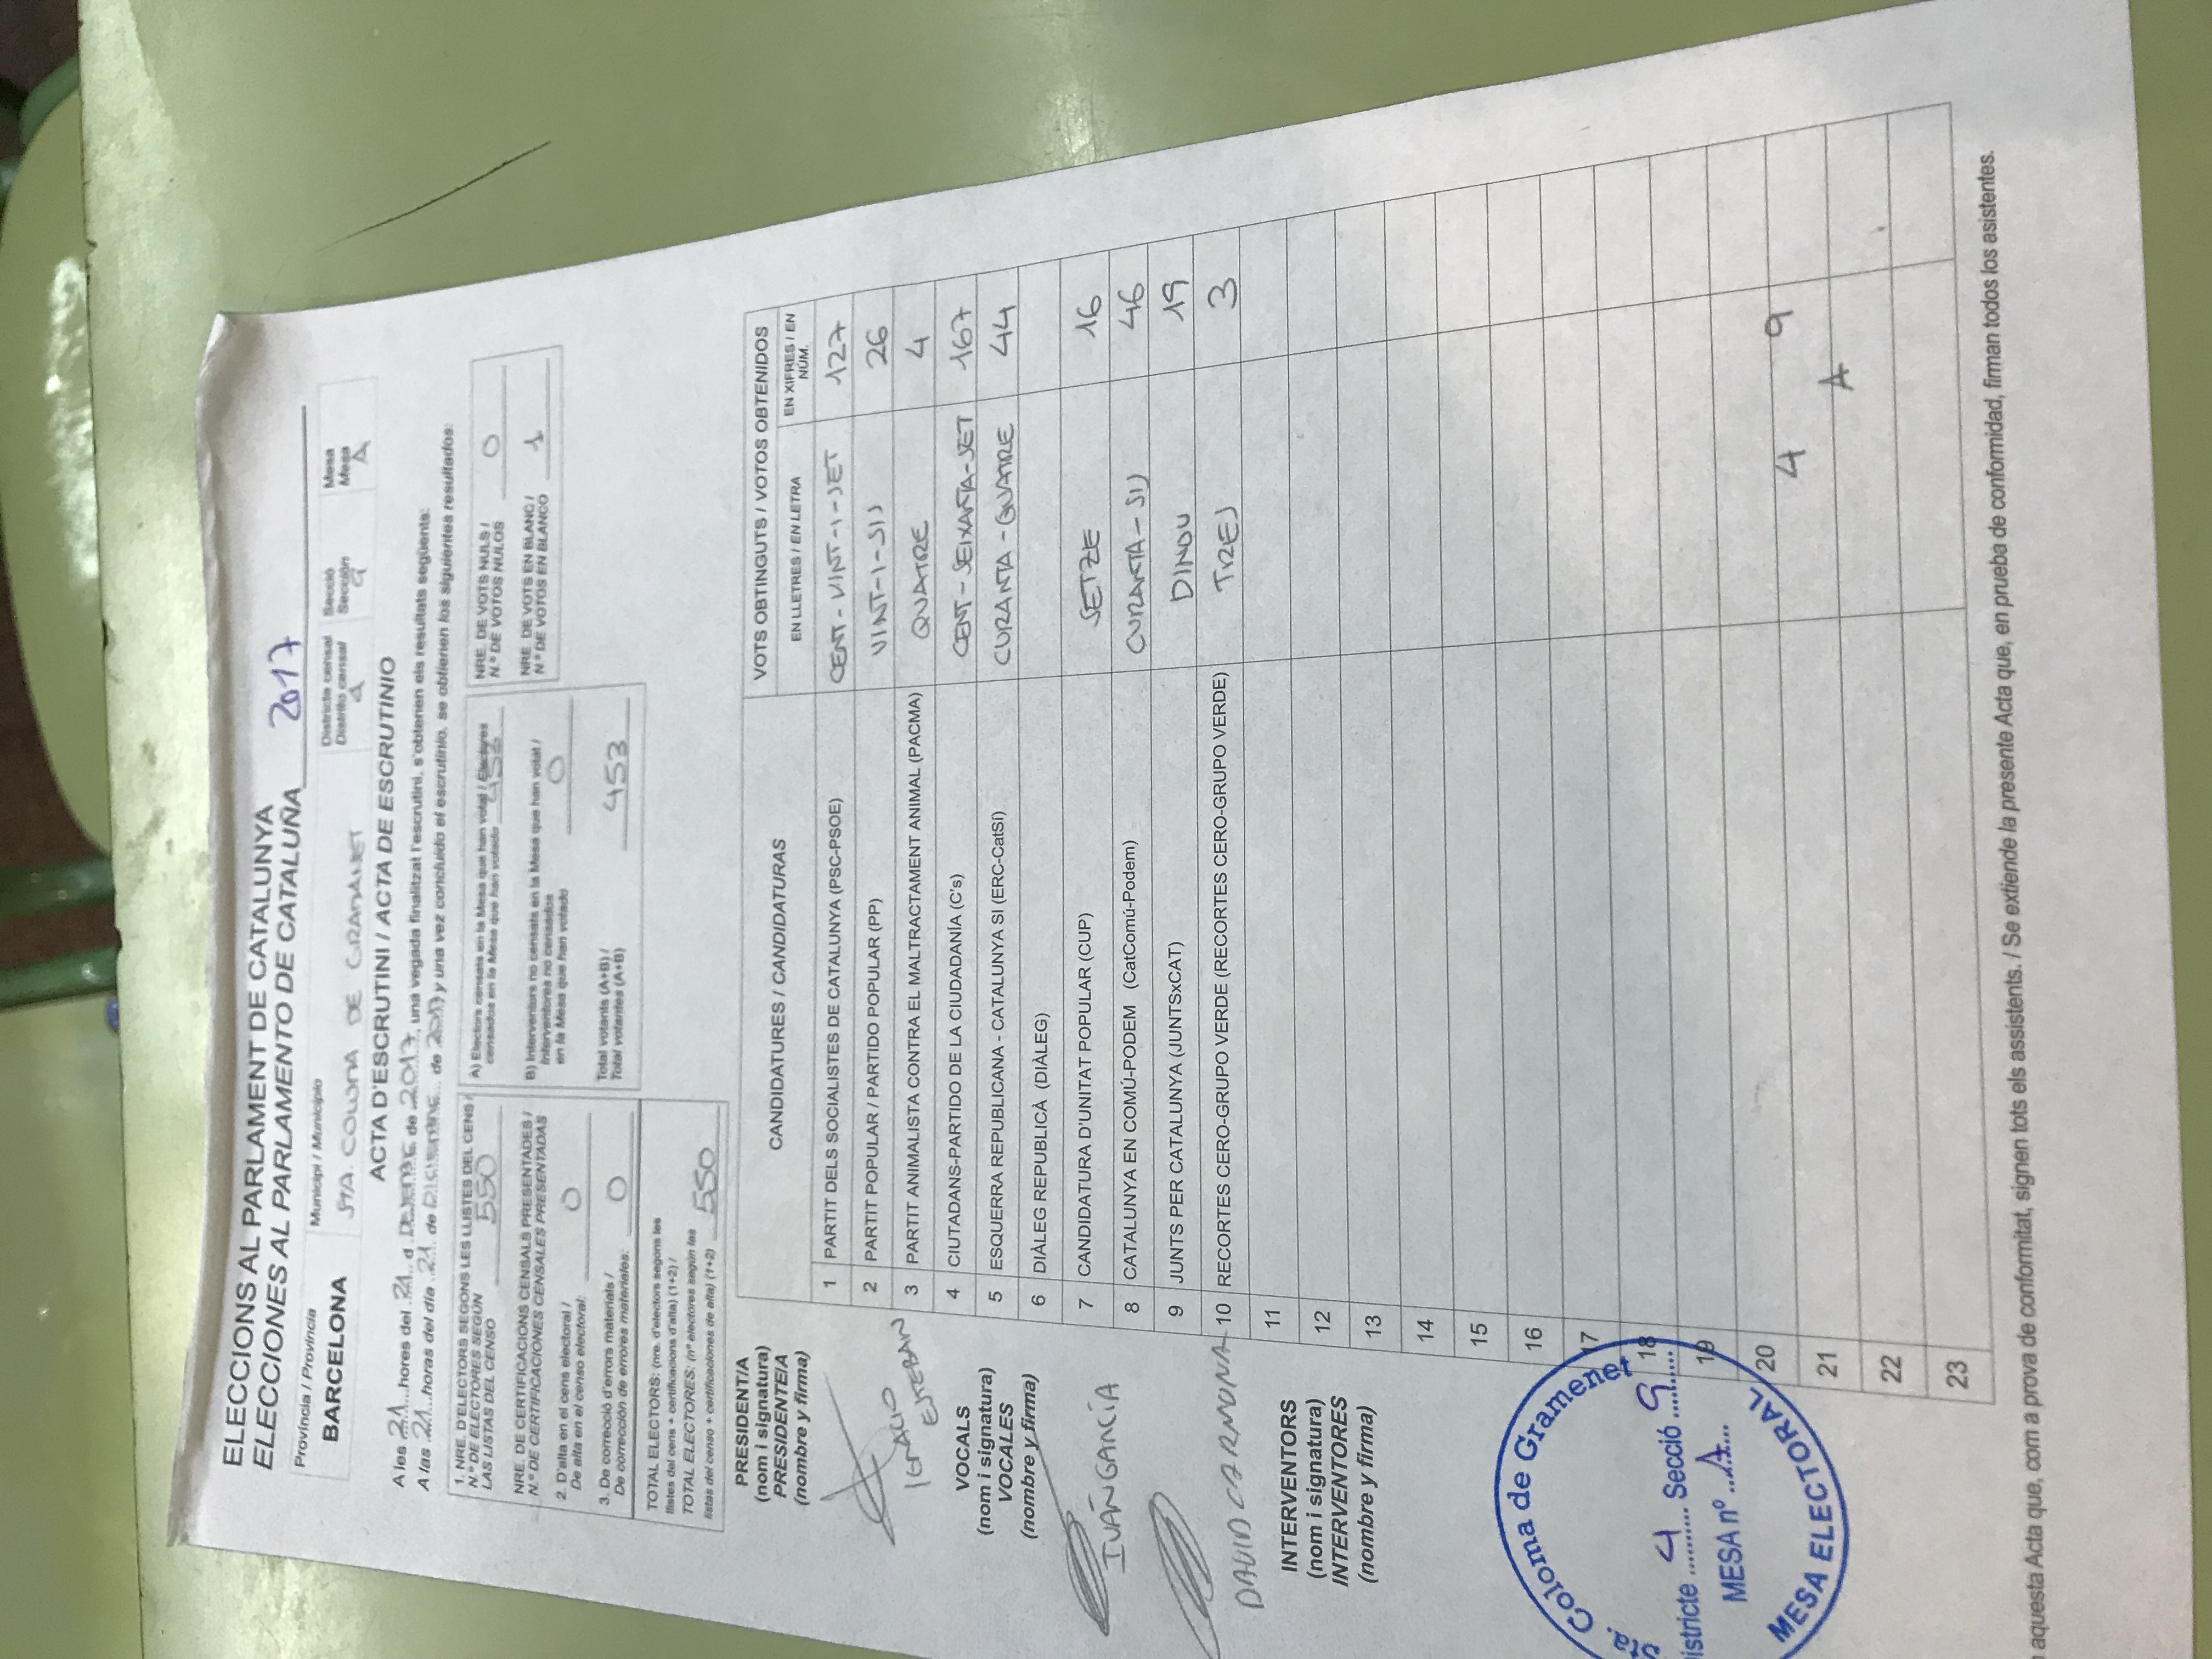 ELECCIONS AL PARLAMENT DE CATALUNYA
ELECCIONES AL PARLAMENTO DE CATALUÑA 2017
Província / Provincia
BARCELONA
Municipi / Municipio
STA. COLOMA DE GRAMANET
Districte censal
Distrito censal
4
Secció
Sección
9
Mesa
Mesa
A
ACTA D'ESCRUTINI / ACTA DE ESCRUTINIO
A les 21 hores del 21 d DESEMBRE de 2017, una vegada finalitzat l'escrutini, s'obtenen els resultats següents:
A las 21 horas del día 21 de DICIEMBRE de 2017 y una vez concluido el escrutinio, se obtienen los siguientes resultados:
1. NRE. D'ELECTORS SEGONS LES LLISTES DEL CENS /
N.º DE ELECTORES SEGÚN
LAS LISTAS DEL CENSO 550
NRE. DE CERTIFICACIONS CENSALS PRESENTADES /
N.º DE CERTIFICACIONES CENSALES PRESENTADAS
2. D'alta en el cens electoral /
De alta en el censo electoral: 0
3. De correcció d'errors materials /
De corrección de errores materiales: 0
TOTAL ELECTORS: (nre. d'electors segons les
llistes del cens + certificacions d'alta) (1+2) /
TOTAL ELECTORES: (nº electores según las
listas del censo + certificaciones de alta) (1+2) 550
A) Electors censats en la Mesa que han votat / Electores
censados en la Mesa que han votado 453
B) Interventors no censats en la Mesa que han votat /
Interventores no censados
en la Mesa que han votado 0
Total votants (A+B) /
Total votantes (A+B) 453
NRE. DE VOTS NULS /
N.º DE VOTOS NULOS 0
NRE. DE VOTS EN BLANC /
N.º DE VOTOS EN BLANCO 1
PRESIDENT/A
(nom i signatura)
PRESIDENTE/A
(nombre y firma)
IGNACIO
ESTEBAN
VOCALS
(nom i signatura)
VOCALES
(nombre y firma)
IVAN GARCÍA
DAVID CARMONA
INTERVENTORS
(nom i signatura)
INTERVENTORES
(nombre y firma)
CANDIDATURES / CANDIDATURAS
VOTS OBTINGUTS / VOTOS OBTENIDOS
EN LLETRES / EN LETRA
EN XIFRES / EN
NÚM.
1 PARTIT DELS SOCIALISTES DE CATALUNYA (PSC-PSOE) CENT-VINT-I-SET 127
2 PARTIT POPULAR / PARTIDO POPULAR (PP) VINT-I-SIS 26
3 PARTIT ANIMALISTA CONTRA EL MALTRACTAMENT ANIMAL (PACMA) QUATRE 4
4 CIUTADANS-PARTIDO DE LA CIUDADANÍA (C's) CENT-SEIXANTA-SET 167
5 ESQUERRA REPUBLICANA - CATALUNYA SI (ERC-CatSí) CURANTA-QUATRE 44
6 DIÀLEG REPUBLICÀ (DIÀLEG)
7 CANDIDATURA D'UNITAT POPULAR (CUP) SETZE 16
8 CATALUNYA EN COMÚ-PODEM (CatComú-Podem) CURANTA-SIS 46
9 JUNTS PER CATALUNYA (JUNTSxCAT) DINOU 19
10 RECORTES CERO-GRUPO VERDE (RECORTES CERO-GRUPO VERDE) TRES 3
11
12
13
14
15
16
17
18
19
20
21
22
23
4 9
A
Sta. Coloma de Gramenet
istricte 4 Secció 9
MESA nº A
MESA ELECTORAL
n aquesta Acta que, com a prova de conformitat, signen tots els assistents. / Se extiende la presente Acta que, en prueba de conformidad, firman todos los asistentes.